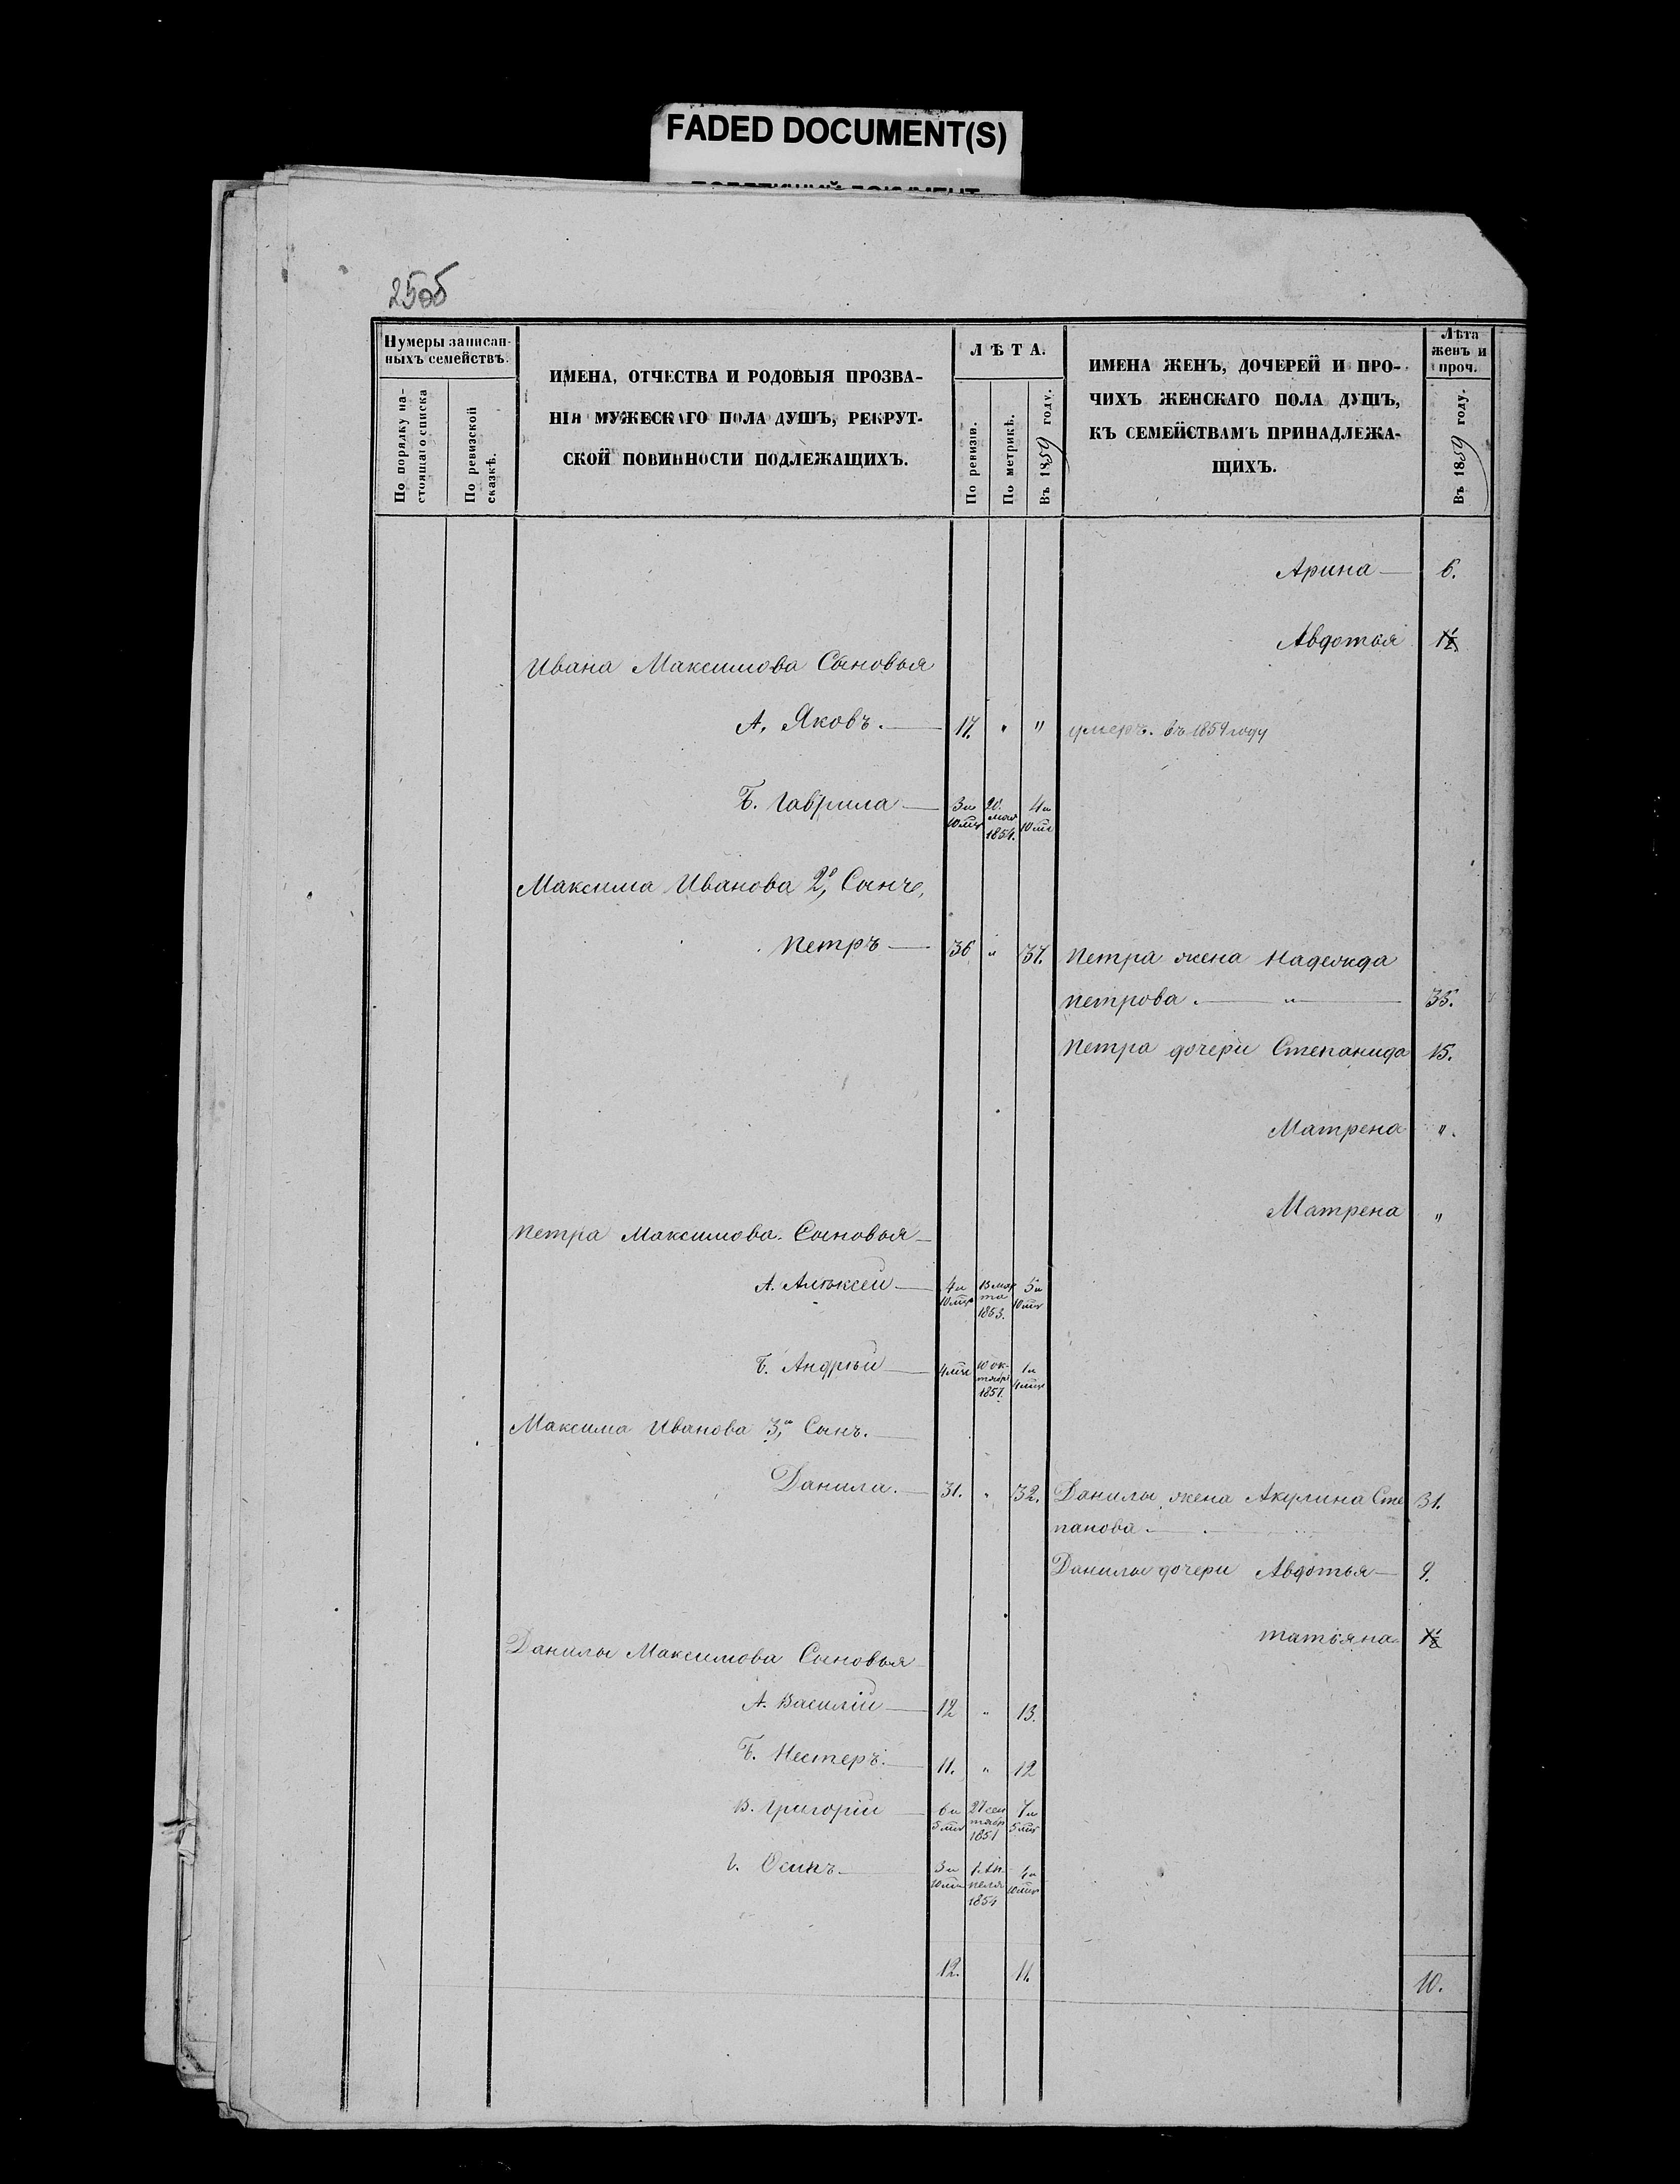 FADED DOCUMENT(S)
250б
Нумеры записан-
ныхъ семействъ.
По порядку на-
стоящаго списка
По ревизской
сказкѣ.
ИМЕНА, ОТЧЕСТВА И РОДОВЫЯ ПРОЗВА-
НІЯ МУЖЕСКАГО ПОЛА ДУШЪ, РЕКРУТ-
СКОЙ ПОВИННОСТИ ПОДЛЕЖАЩИХЪ.
ЛѢТА.
По ревизіи.
По метрикѣ.
Въ 1859 году.
ИМЕНА ЖЕНЪ, ДОЧЕРЕЙ И ПРО-
ЧИХЪ ЖЕНСКАГО ПОЛА ДУШЪ,
КЪ СЕМЕЙСТВАМЪ ПРИНАДЛЕЖА-
ЩИХЪ.
Лѣта
женъ и
проч.
Въ 1859 году.
Арина — 6.
Авдотья 1½
Ивана Максимова Сыновья
А. Яковъ. — 17. " " умеръ. въ 1859 году
Б. Гаврила — 3 и 10 мцъ 20. мая 1854. 4 и 10 мц
Максима Иванова 2й Сынъ,
Петръ — 36 " 37. Петра жена Надежда
Петрова. — " — 35.
Петра дочери Степанида 15.
Матрена ".
Матрена "
Петра Максимова Сыновья —
А. Алѣксей — 4 и 10 мцъ 13 мар та 1853. 5 и 10 мцъ
Б. Андрѣй — 4 мца 10 ок- тября 1857. 1 и 4 мца
Максима Иванова 3й Сынъ. —
Данила. — 31. " 32. Данилы жена Акулина Сте 31.
панова. —
Данилы дочери Авдотья — 9.
Татьяна 1½
Данилы Максимова Сыновья
А. Василій — 12 " 13.
Б. Нестеръ. — 11. " 12
В. Григорій — 6 и 5 мцъ 27 сен тября 1851 7 и 5 мцъ
Г. Осипъ. — 3 и 10 мцъ 1 Ап- реля 1854 4 и 10 мцъ
12. 11. 10.